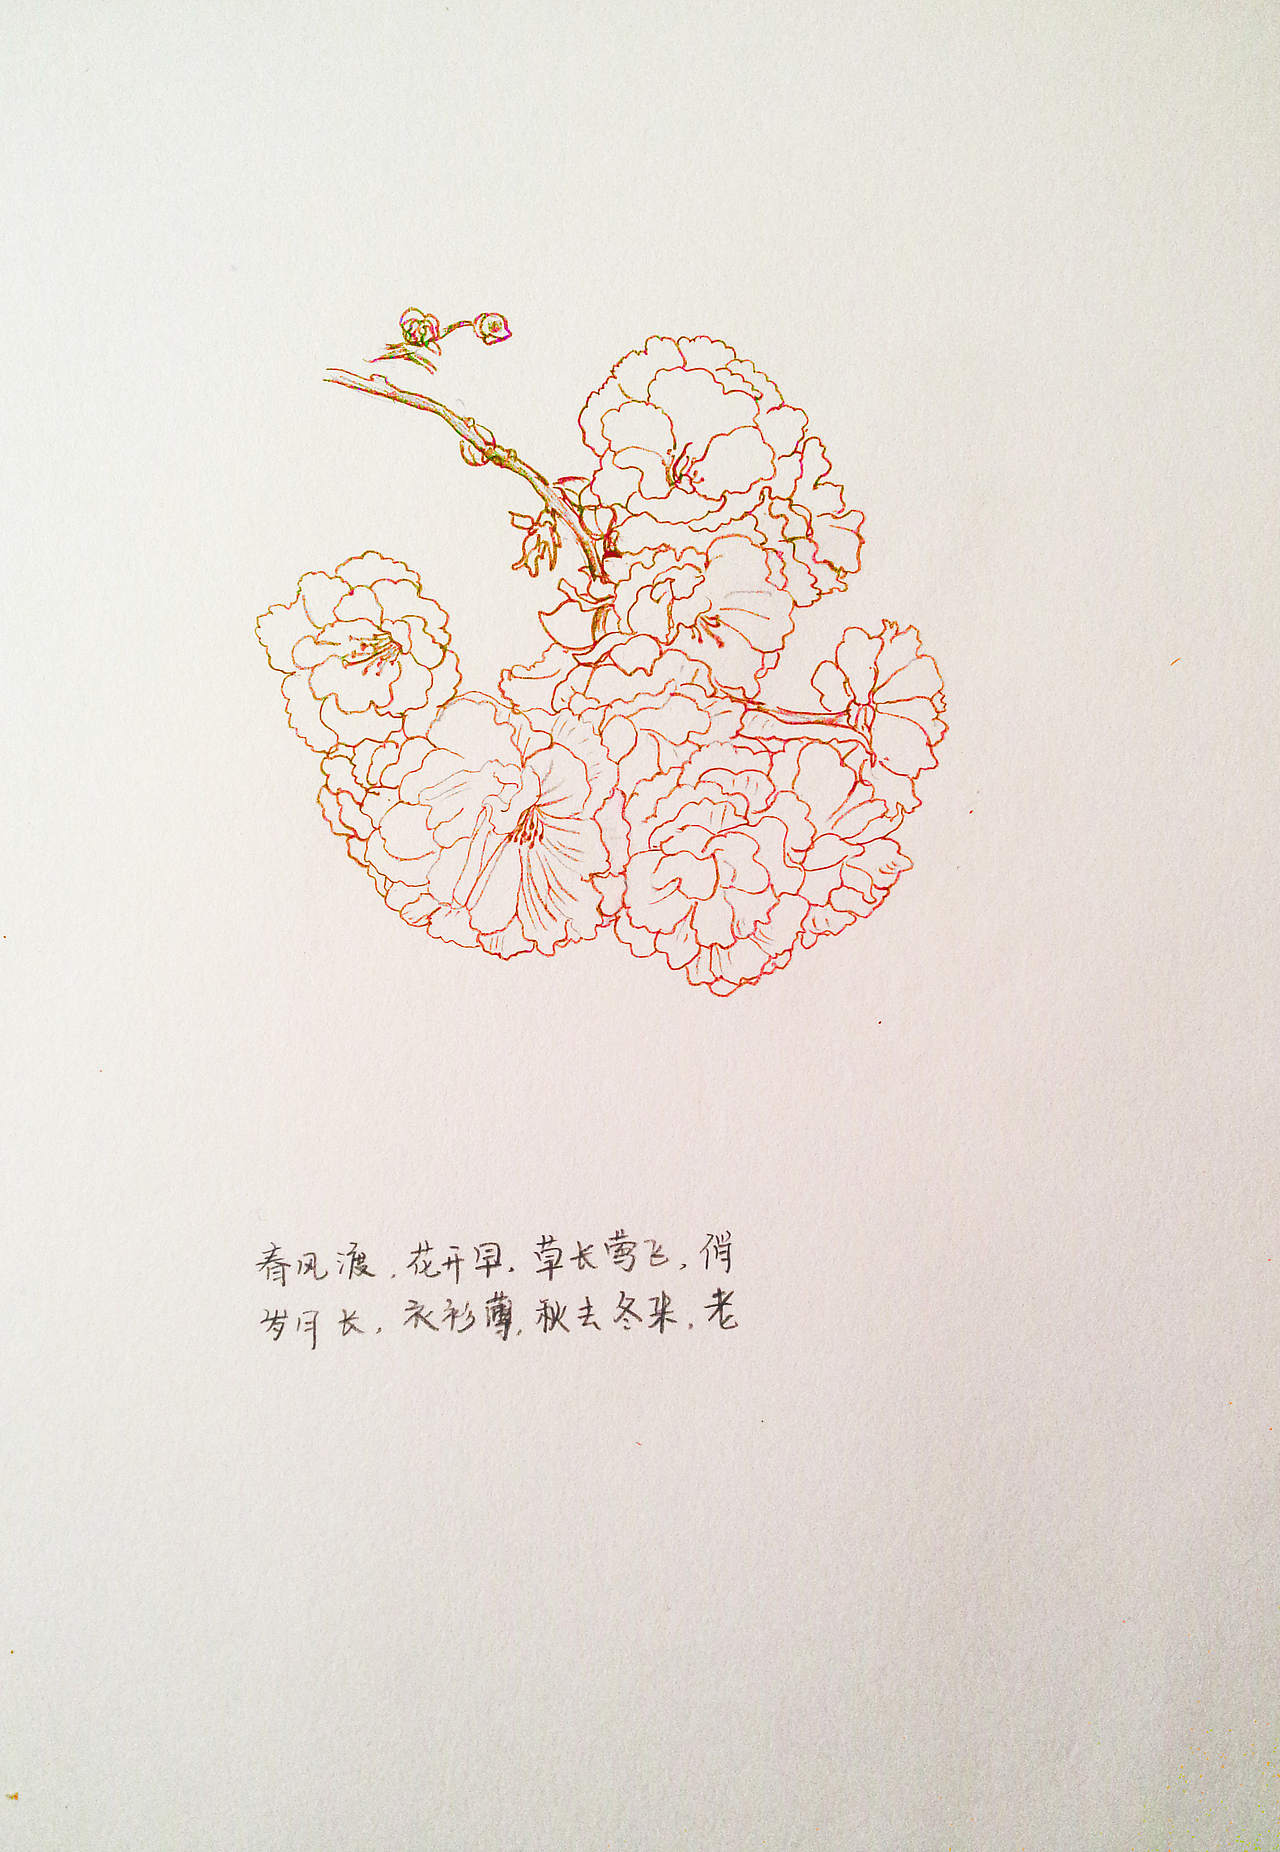 春风渡，花开早，草长莺飞，俏
岁月长，衣衫薄，秋去冬来，老